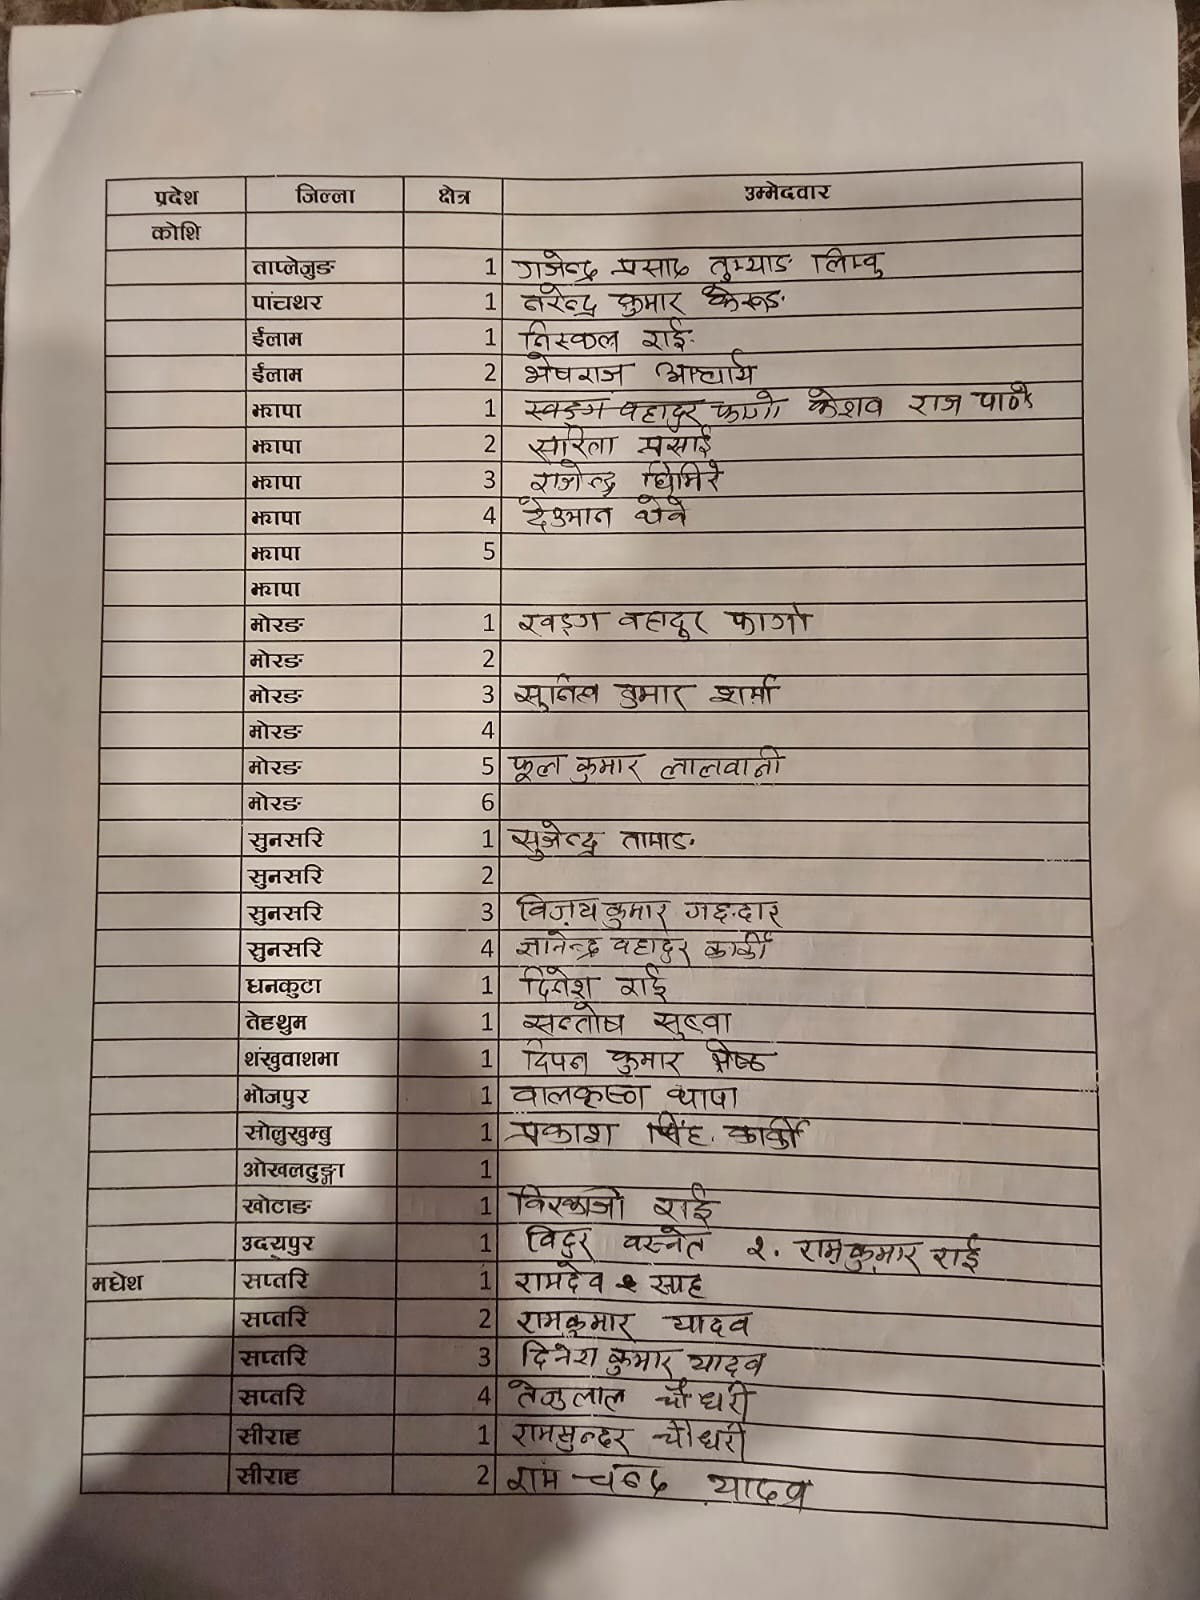 प्रदेश जिल्ला क्षेत्र उम्मेदवार
कोशि
ताप्लेजुङ 1 गजेन्द्र प्रसाद तुम्याङ लिम्बु
पांचथर 1 नरेन्द्र कुमार केरुङ
ईलाम 1 निस्कल राई
ईलाम 2 भेषराज आचार्य
झापा 1 खड्ग बहादुर फागो केशव राज पाण्डे
झापा 2 सरिता प्रसाई
झापा 3 राजेन्द्र घिमिरे
झापा 4 देउमान थेबे
झापा 5
झापा
मोरङ 1 खड्ग बहादुर फागो
मोरङ 2
मोरङ 3 सुनिल कुमार शर्मा
मोरङ 4
मोरङ 5 फूल कुमार लालवानी
मोरङ 6
सुनसरि 1 सुजेन्द्र तामाङ
सुनसरि 2
सुनसरि 3 विजय कुमार
सुनसरि 4 ज्ञानेन्द्र बहादुर कार्की
धनकुटा 1 दिनेश राई
तेह्रथुम 1 सन्तोष सुब्बा
शंखुवाशभा 1 दिपन कुमार श्रेष्ठ
भोजपुर 1 बालकृष्ण थापा
सोलुखुम्बु 1 प्रकाश सिंह कार्की
ओखलढुङ्गा 1
खोटाङ 1 राई
उदयपुर 1 विदुर बस्नेत २. रामकुमार राई
मधेश सप्तरि 1 रामदेव साह
सप्तरि 2 रामकुमार यादव
सप्तरि 3 दिनेश कुमार यादव
सप्तरि 4 तेजुलाल चौधरी
सीराह 1 रामसुन्दर चौधरी
सीराह 2 राम चन्द्र यादव